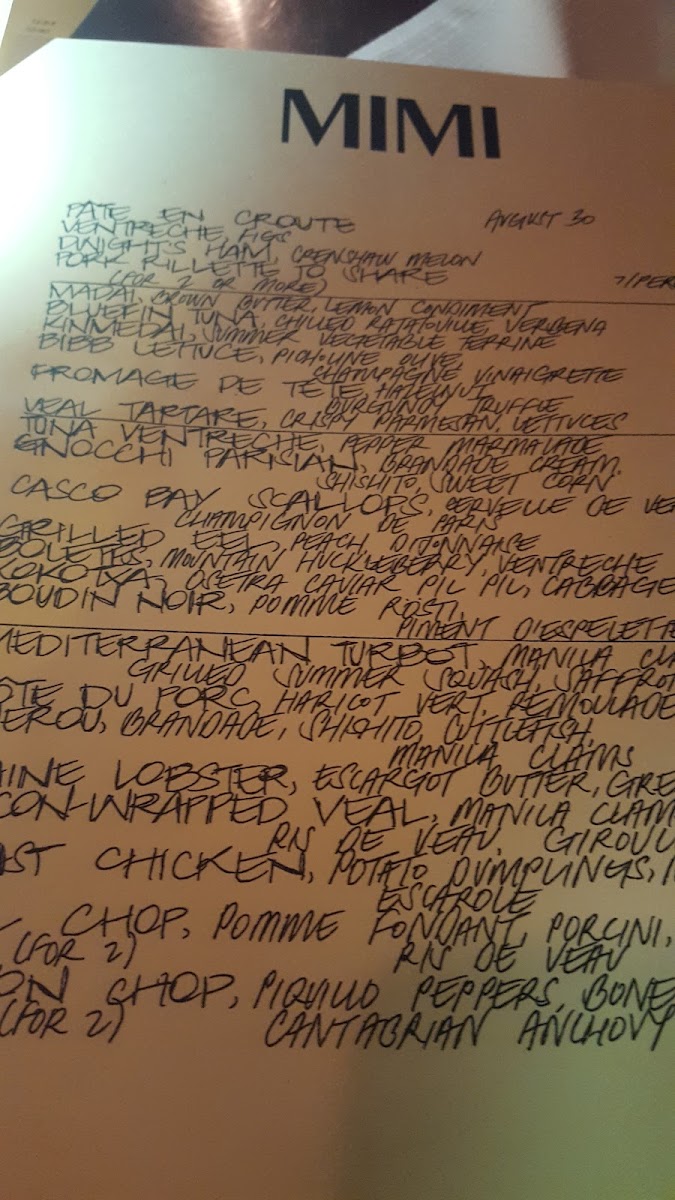 MIMI
AUGUST 30
PATE EN CROUTE
VENTRECHE, FIGS
DWIGHT'S HAM, CRENSHAW MELON
PORK RILLETTE TO SHARE
(FOR 2 OR MORE) 7/PER
MADAI, BROWN BUTTER, LEMON CONDIMENT
BLUEFIN TUNA, CHILLED RATATOUILLE, VERBENA
KINMEDAI, SUMMER VEGETABLE TERRINE
BIBB LETTUCE, PICHOLINE OLIVE,
CHAMPAGNE VINAIGRETTE
FROMAGE DE TETE, HAZELNUT
BURGUNDY TRUFFLE
VEAL TARTARE, CRISPY PARMESAN, LETTUCES
TUNA VENTRECHE, PEPPER MARMALADE
GNOCCHI PARISIAN, BRANDADE CREAM,
SHISHITO, SWEET CORN
CASCO BAY SCALLOPS, CERVELLE DE VE
CHAMPIGNON DE PARIS
GRILLED EEL, PEACH DIJONNAISE
BOLETES, MOUNTAIN HUCKLEBERRY, VENTRECHE
KOKOTXA, OSETRA CAVIAR PIL PIL, CABBAGE
BOUDIN NOIR, POMME ROSTI,
PIMENT D'ESPELETTE
MEDITERRANEAN TURBOT, MANILA CLA
GRILLED SUMMER SQUASH, SAFFRON
OTE DU PORC, HARICOT VERT, REMOULADE
EROU, BRANDADE, SHISHITO, CUTTLEFISH
MANILA CLAMS
AINE LOBSTER, ESCARGOT BUTTER, GRE
CON-WRAPPED VEAL, MANILA CLAM
RIS DE VEAU, GIROLL
AST CHICKEN, POTATO DUMPLINGS,
ESCAROLE
L CHOP, POMME FONDANT, PORCINI,
(FOR 2) RIS DE VEAU
ON CHOP, PIQUILLO PEPPERS, BONE
(FOR 2) CANTABRIAN ANCHOVY